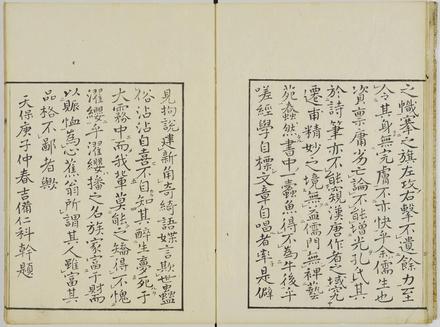 之幟搴之旗左攻右擊不遺餘力至
令其身無完膚不亦快乎余儒生也
資稟庸劣亡論不能增光孔氏其
於詩筆亦不能窺漢唐作者之域究
遷甫精妙之境無益儒門無裨藝
苑蠢然書中一蠹魚得不為牛後乎
嗟經學自標文章自唱者率是僻
見拘說建新角奇綺語媟言欺世蠱
俗沾沾自喜不自知其醉生夢死于
大霧中而我輩莫能之矯得不愧
濯纓乎濯纓播之名族家富于財而
以賑恤為心蕉翁所謂其人雖富其
品格不鄙者歟
天保庚子仲春吉備仁科幹題